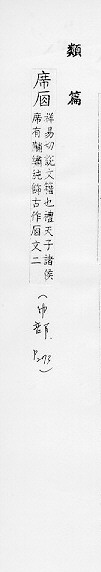 類篇
席𠩊祥易切說文籍也禮天子諸侯
席有黼繡純飾古作𠩊文二
(巾部, P273)